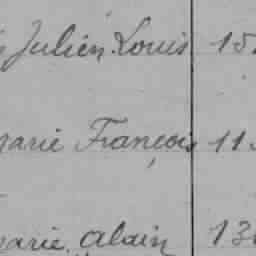 Julien Louis 15
Marie François 11
Marie Alain 13